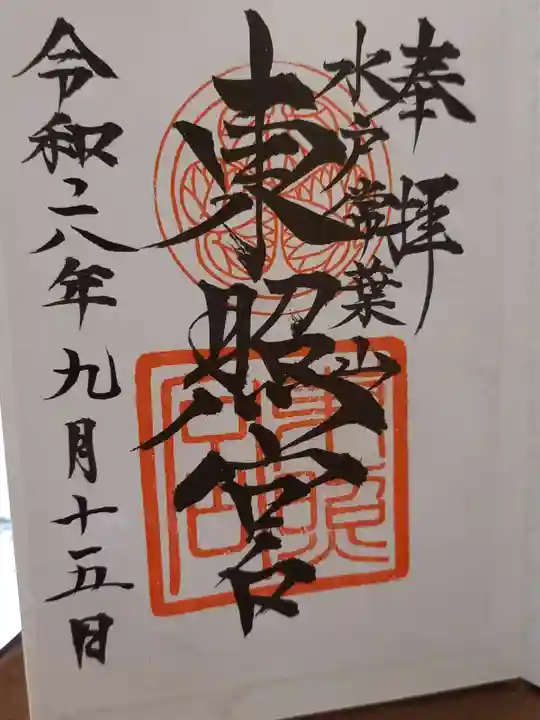 奉拝
水戸常葉山
東照宮
令和二八年九月十五日